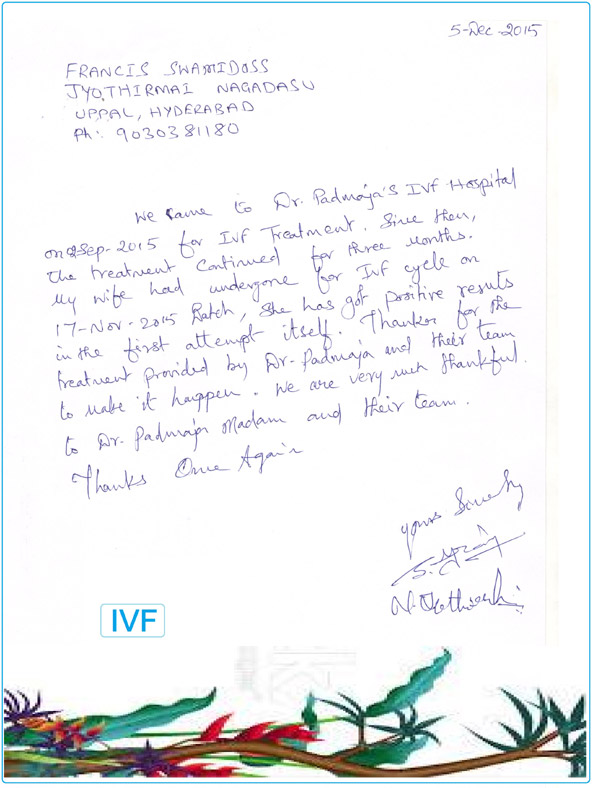 5-Dec-2015
FRANCIS SWAMIDOSS
JYOTHIRMAI NAGADASU
UPPAL, HYDERABAD
Ph: 9030381180
We came to Dr. Padmaja's IVF Hospital
on Sep-2015 for IVF Treatment. Since then,
the treatment continued for three months.
My wife had undergone for IVF cycle on
17-Nov-2015 Batch, She has got positive results
in the first attempt itself. Thanks for the
treatment provided by Dr. Padmaja and their team
to make it happen. We are very much thankful
to Dr. Padmaja Madam and their team.
Thanks Once Again
yours Sincerely
IVF